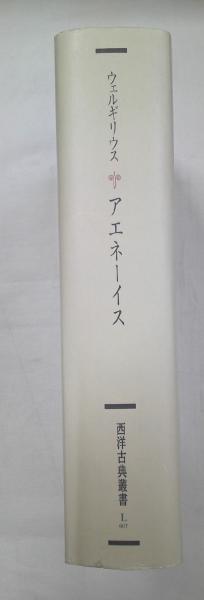 ウェルギリウス
アエネーイス
西洋古典叢書
L
007